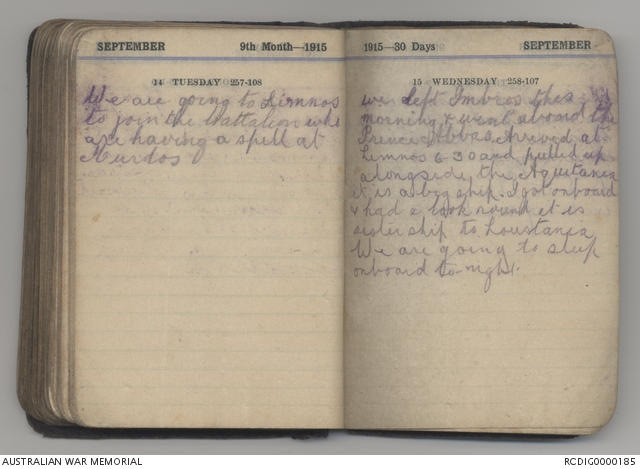 SEPTEMBER 9th Month—1915
14 TUESDAY 257-108
We are going to Limnos
to join the battalion who
are having a spell at
Murdos
1915—30 Days SEPTEMBER
15 WEDNESDAY 258-107
we left Imbros this
morning & went aboard the
Prince Abbas. Arrived at
Limnos 6-30 and pulled up
alongside the Aquitania
it is a big ship. I got onboard
& had a look round it is
sister ship to Loustania
We are going to sleep
onboard to-night.
AUSTRALIAN WAR MEMORIAL
RCDIG0000185